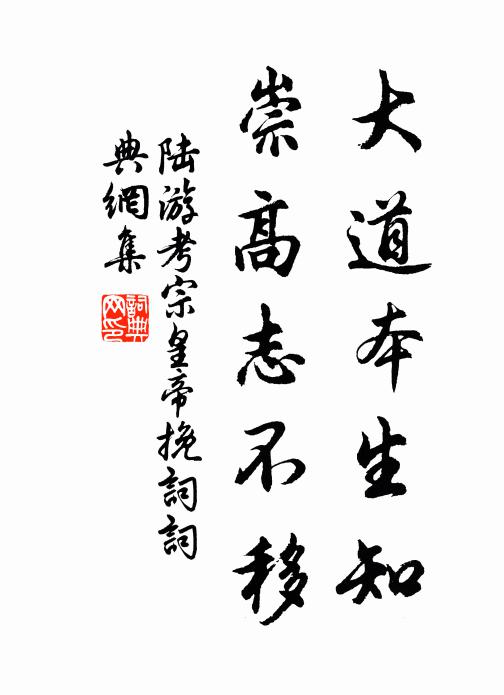 大道本生知
崇高志不移
陸游考宗皇帝挽詞詞
典網集
詞典
网印